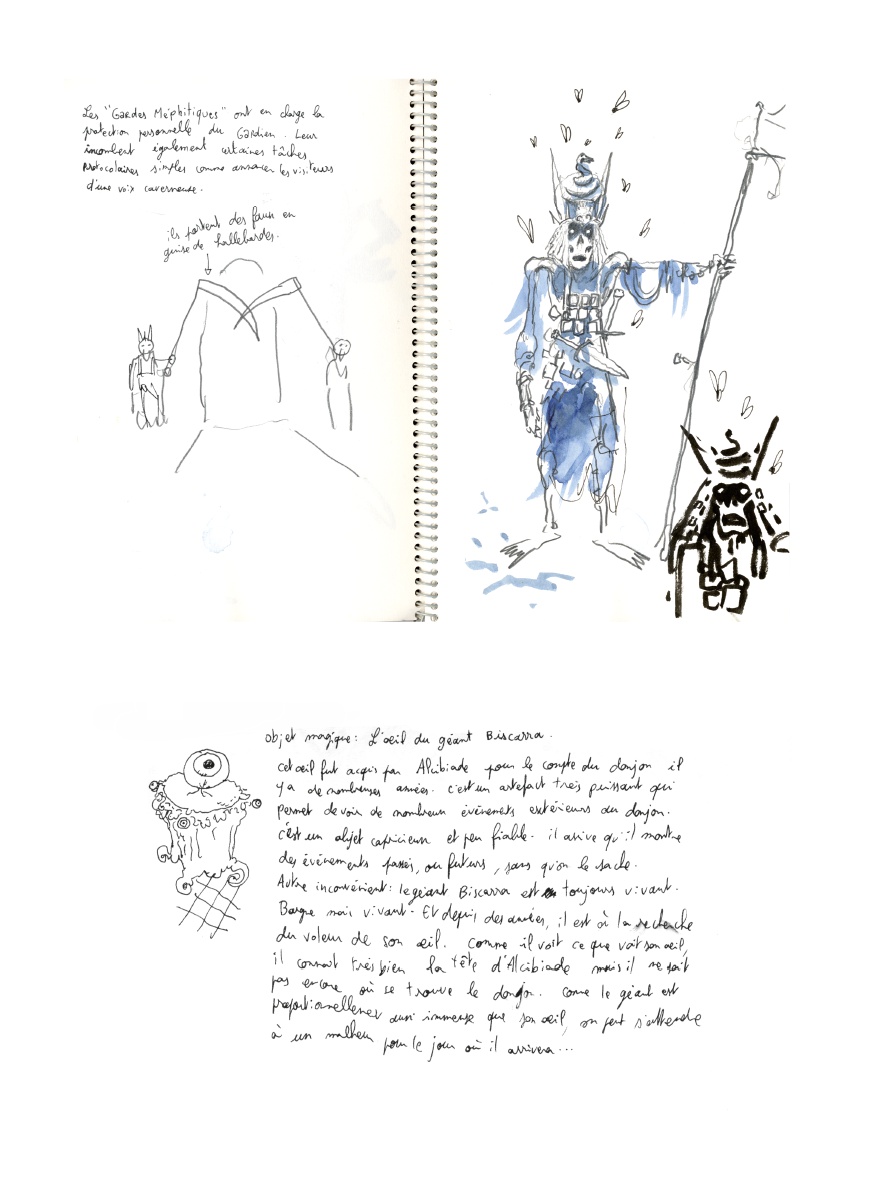 Les "Gardes Méphitiques" ont en charge la
protection personnelle du Gardien. Leur
incombent également certaines tâches
protocolaires simples comme annoncer les visiteurs
d'une voix caverneuse.
ils portent des faux en
guise de hallebardes.
objet magique: L'oeil du géant Biscarra.
cet oeil fut acquis par Alcibiade pour le compte du donjon il
y a de nombreuses années. c'est un artefact très puissant qui
permet de voir de nombreux événements extérieurs au donjon.
c'est un objet capricieux et peu fiable. il arrive qu'il montre
des événements passés, ou futurs, sans qu'on le sache.
Autre inconvénient: le géant Biscarra est toujours vivant.
Borgne mais vivant. Et depuis des années, il est à la recherche
du voleur de son œil. Comme il voit ce que voit son œil,
il connait très bien la tête d'Alcibiade mais il ne sait
pas encore où se trouve le donjon. Comme le géant est
proportionnellement aussi immense que son œil, on peut s'attendre
à un malheur pour le jour où il arrivera...